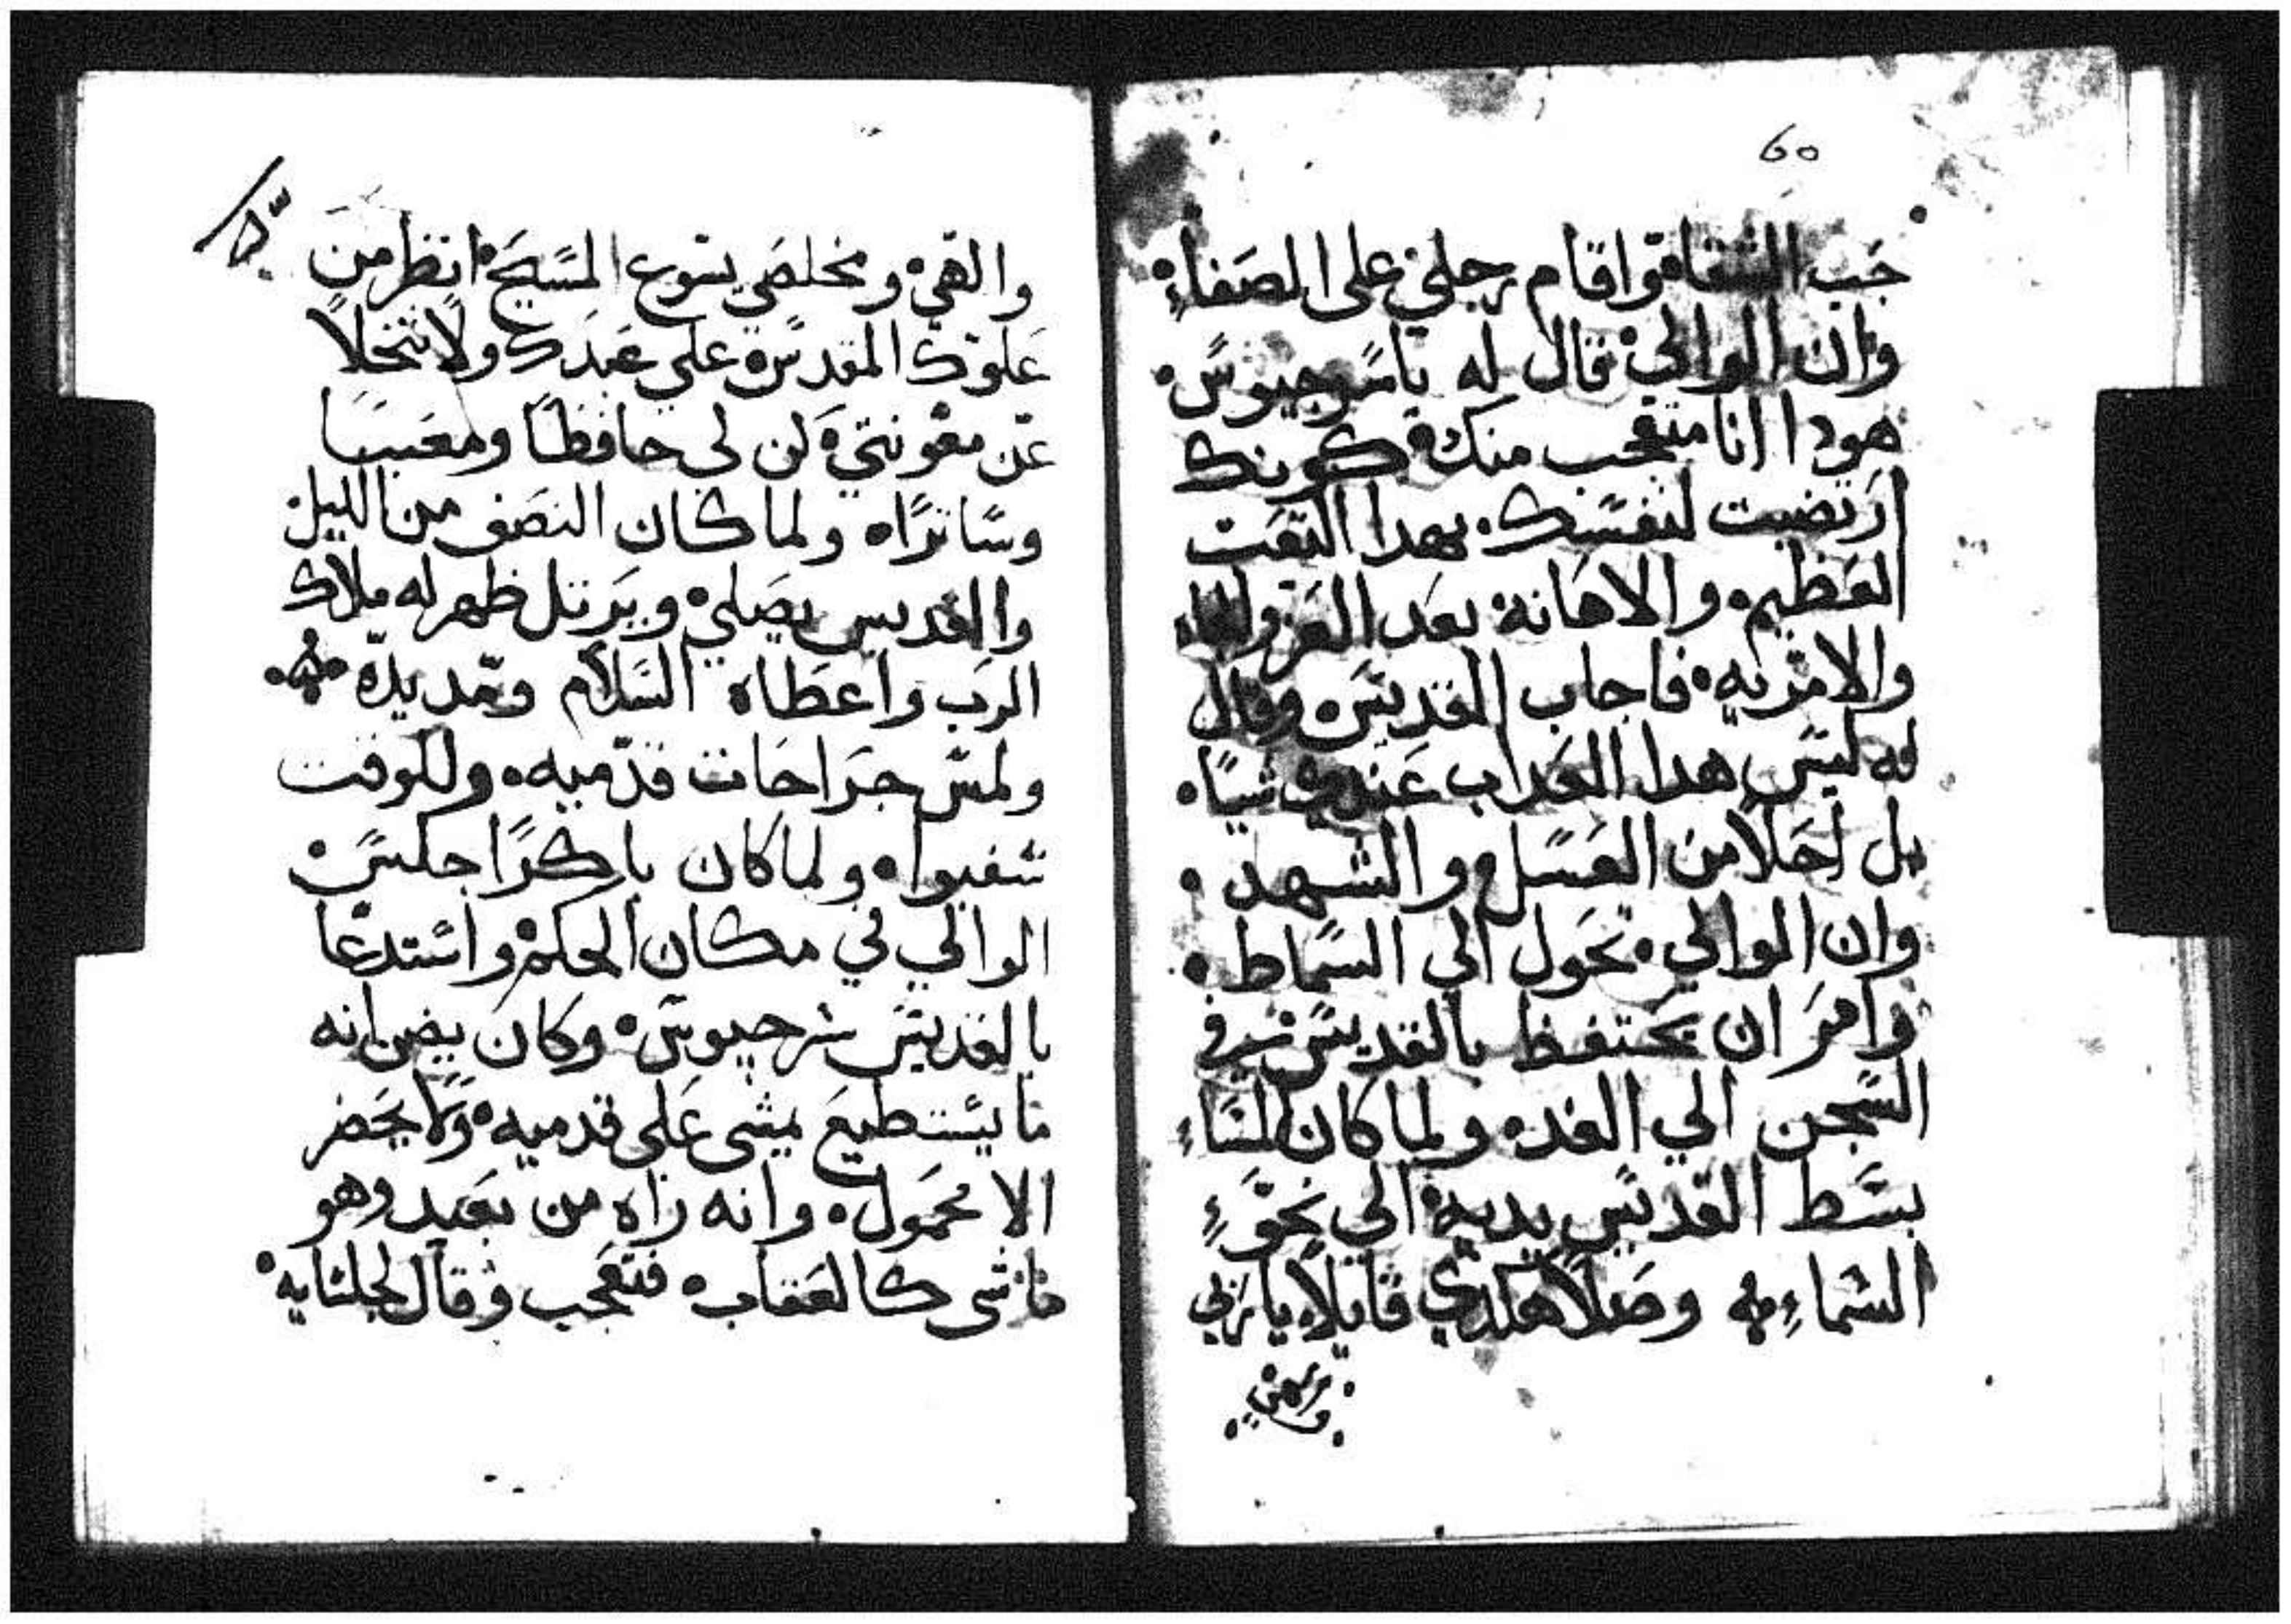 60
جب الشقاق واقام رجلي على الصفاء
وان الوالي قال له ياسرجيوس
هودا انا متعجب منك كونك
ارتضيت لنفسك بهدا التعت
العظيم والاهانة بعد العز
والامريه فاجاب القديس وقال
له ليس هدا العداب عندي شيًا
بل احلا من العسل والشهد
وان الوالي تحول الي السماط
وامر ان يحتفظ بالقديس في
السجن الي الغد ولما كان المساء
بسط القديس يديه الي نحو
السماء وصلا هكدي قايلا ياربي
والهي ومخلصي يسوع المسيح انظر من
علوك المقدس علي عبدك ولا تتخلا
عن معونتي كن لي حافظًا ومعينا
وساترًا ولما كان النصف من الليل
والقديس يصلي ويرتل ظهر له ملاك
الرب واعطاه السلام ومد يده
ولمس جراحات قدميه وللوقت
شفيوا ولما كان باكرًا جلس
الوالي في مكان الحكم واستدعا
بالقديس سرجيوس وكان يضن انه
ما يستطيع يمشى على قدميه ولا يحضر
الا محمول وانه راه من بعيد وهو
ماشى كالعقاب فتعجب وقال لجلسايه